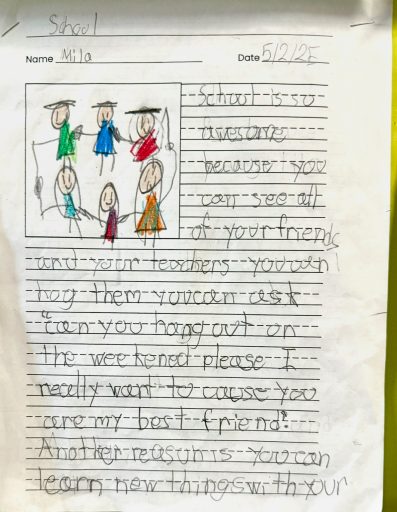 School
Name Mila Date 5/2/25
School is so
awesome
because you
can see all
of your friends
and your teachers you can
hug them you can ask
"can you hang out on
the weekened please I
really want to cause you
are my best friend!
Another reasun is you can
learn new things with your